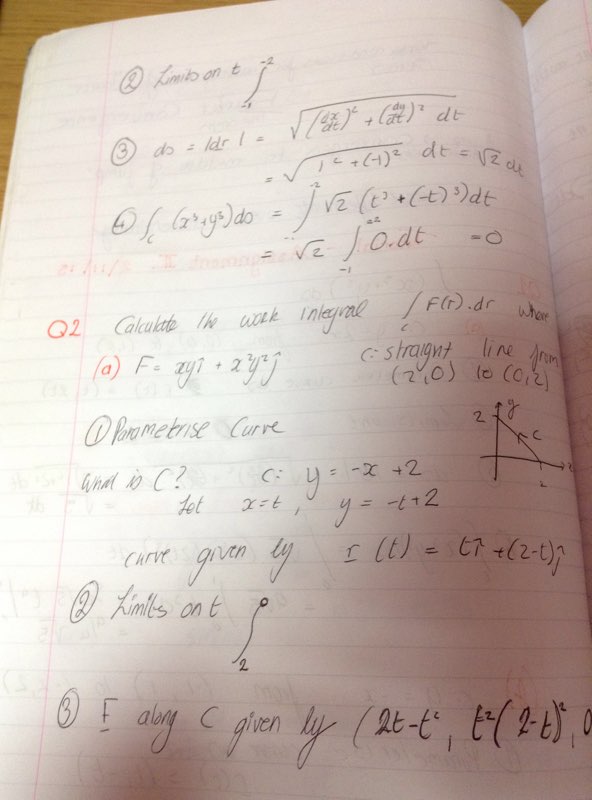 ② Limits on t ∫_{-1}^{-2}
③ ds = |dr| = √((dx/dt)² + (dy/dt)²) dt
= √(1² + (-1)²) dt = √2 dt
④ ∫_C (x³+y³)ds = ∫^{-2} √2 (t³ + (-t)³)dt
= √2 ∫_{-1}^{-2} 0.dt = 0
Q2 Calculate the work integral ∫_C F(r).dr where
(a) F = xyî + x²y²ĵ C: straight line from
(2,0) to (0,2)
① Parametrise Curve
2 y
C
2
What is C? C: y = -x + 2
Let x=t, y = -t+2
curve given by r(t) = tî + (2-t)ĵ
② Limits on t ∫_2^0
③ F along C given by (2t-t², t²(2-t)², 0